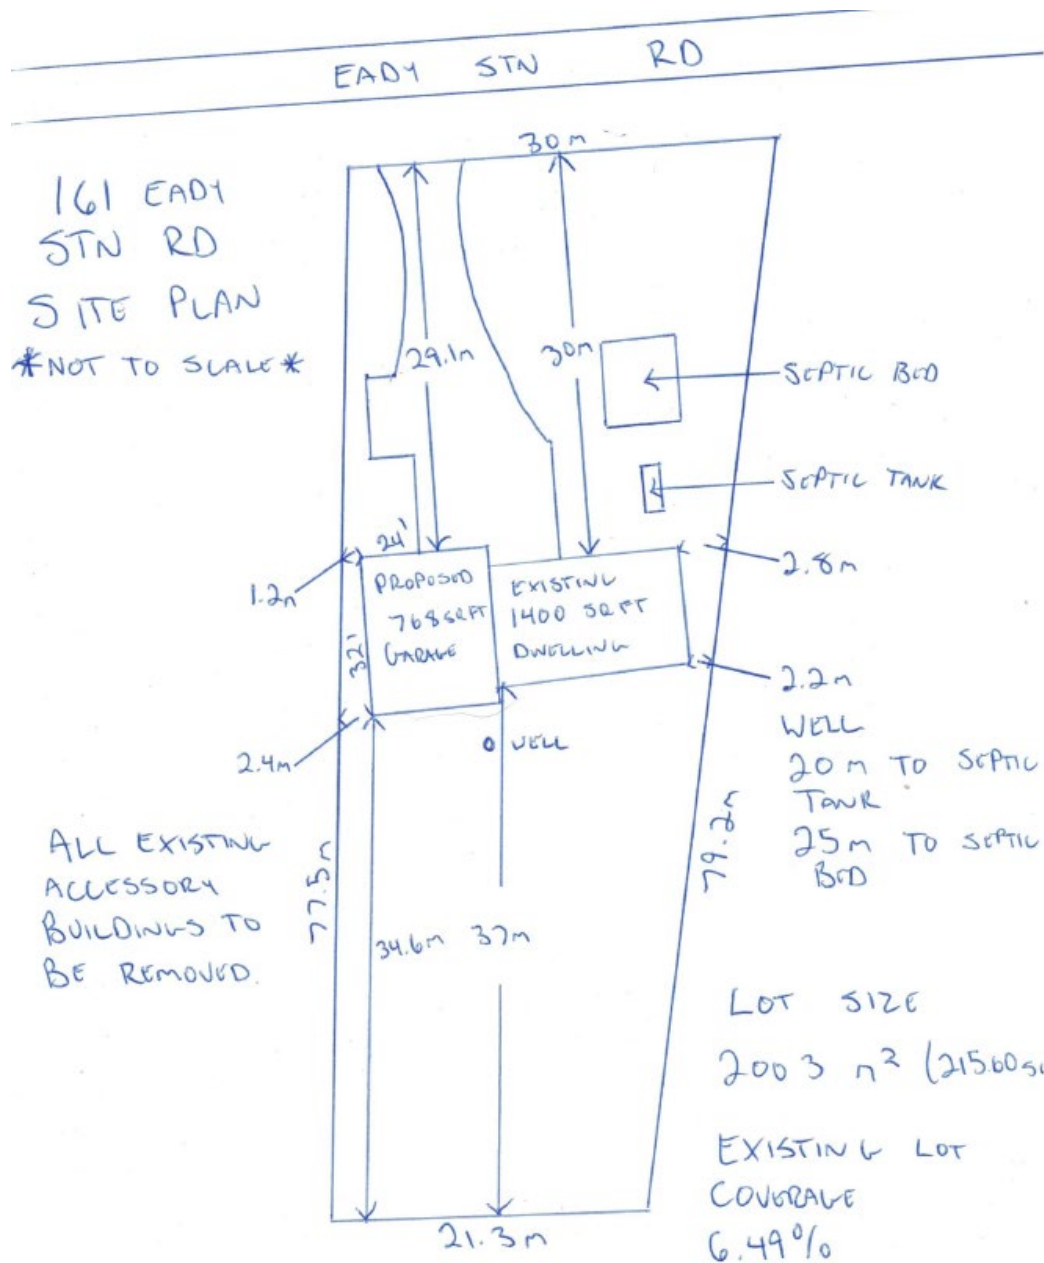 EADY STN RD
161 EADY
STN RD
SITE PLAN
*NOT TO SCALE*
30m
29.1m
30m
SEPTIC BED
SEPTIC TANK
24'
1.2m
2.8m
PROPOSED
768 SQFT
GARAGE
32'
EXISTING
1400 SQ FT
DWELLING
2.2m
2.4m
WELL
WELL
20m TO SEPTIC
TANK
25m TO SEPTIC
BED
ALL EXISTING
ACCESSORY
BUILDINGS TO
BE REMOVED.
77.5m
79.2m
34.6m
37m
LOT SIZE
2003 m² (21560 
EXISTING LOT
COVERAGE
6.49%
21.3m